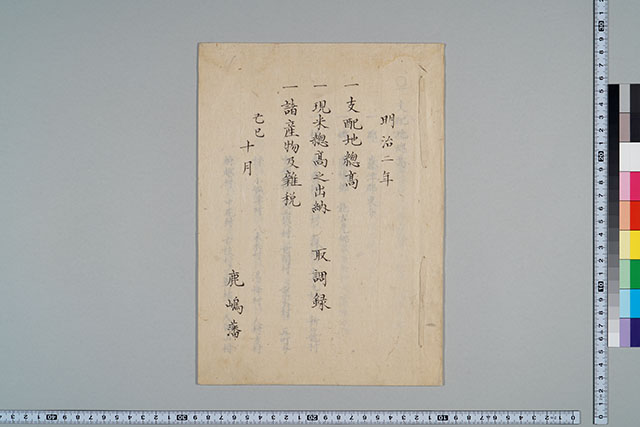 明治二年
一支配地總高
一現米總高之出納 取調録
一諸産物及雜税
己巳十月
鹿嶋藩